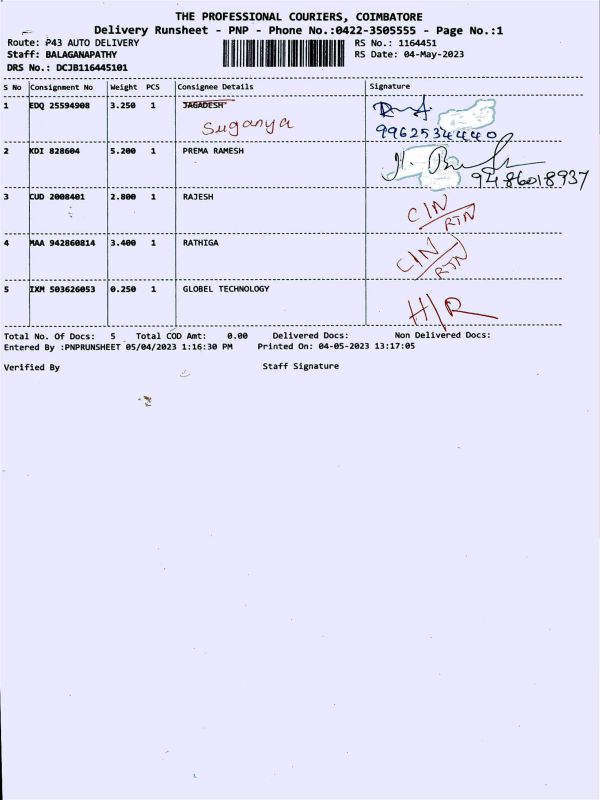 THE PROFESSIONAL COURIERS, COIMBATORE
Delivery Runsheet - PNP - Phone No.:0422-3505555 - Page No.:1
Route: P43 AUTO DELIVERY RS No.: 1164451
Staff: BALAGANAPATHY RS Date: 04-May-2023
DRS No.: DCJB116445101
S No Consignment No Weight PCS Consignee Details Signature
1 EDQ 25594908 3.250 1 JAGADESH
Suganya
9962534440
2 KDI 828604 5.200 1 PREMA RAMESH
9486018937
3 CUD 2008401 2.800 1 RAJESH CIN/RTN
4 MAA 942860814 3.400 1 RATHIGA CIN/RTN
5 IXM 503626053 0.250 1 GLOBEL TECHNOLOGY H/R
Total No. Of Docs: 5 Total COD Amt: 0.00 Delivered Docs: Non Delivered Docs:
Entered By :PNPRUNSHEET 05/04/2023 1:16:30 PM Printed On: 04-05-2023 13:17:05
Verified By Staff Signature